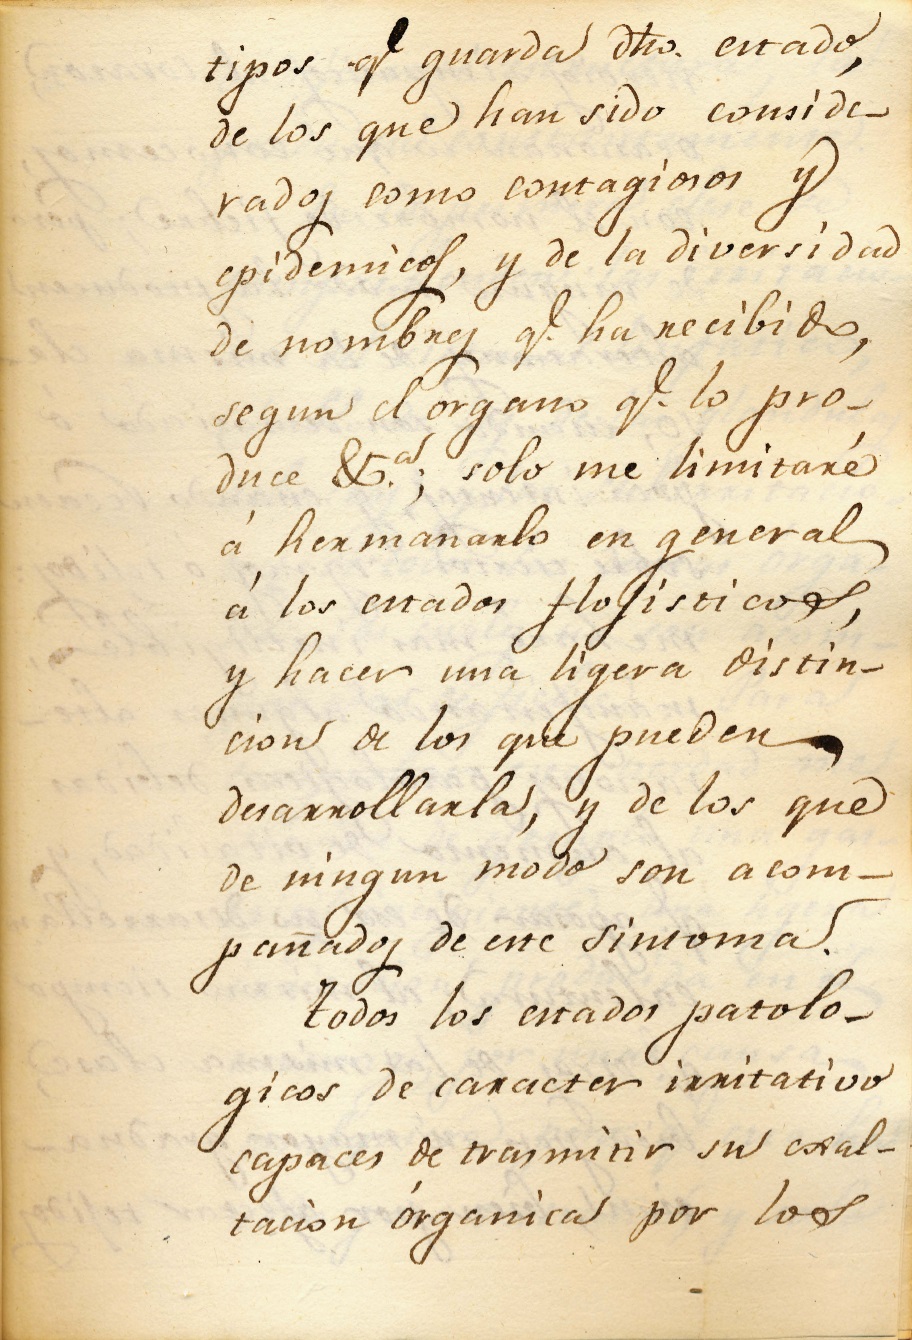 tipos q.e guarda dho. estado,
de los que han sido conside-
rados como contagiosos y
epidemicos, y de la diversidad
de nombres q.e ha recibido,
segun el organo q.e lo pro-
duce &.ca; solo me limitaré
á hermanarlo en general
á los estados flojisticos,
y hacer una ligera distin-
cion de los que pueden
desarrollarla, y de los que
de ningun modo son acom-
pañados de este sintoma.
Todos los estados patolo-
gicos de caracter irritativo
capaces de trasmitir su exal-
tacion órganica por los